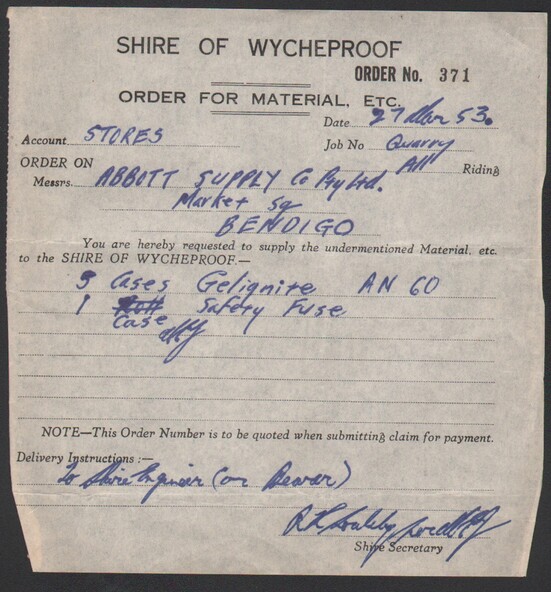 SHIRE OF WYCHEPROOF
ORDER No. 371
ORDER FOR MATERIAL, ETC.
Date 27 Mar 53.
Account STORES
Job No Quarry
ORDER ON All Riding
Messrs. ABBOTT SUPPLY Co Pty Ltd.
Market Sq
BENDIGO
You are hereby requested to supply the undermentioned Material, etc.
to the SHIRE OF WYCHEPROOF.—
5 Cases Gelignite AN 60
1 Safety Fuse
Case
NOTE—This Order Number is to be quoted when submitting claim for payment.
Delivery Instructions :—
To Shire Engineer (or Bearer)
Shire Secretary